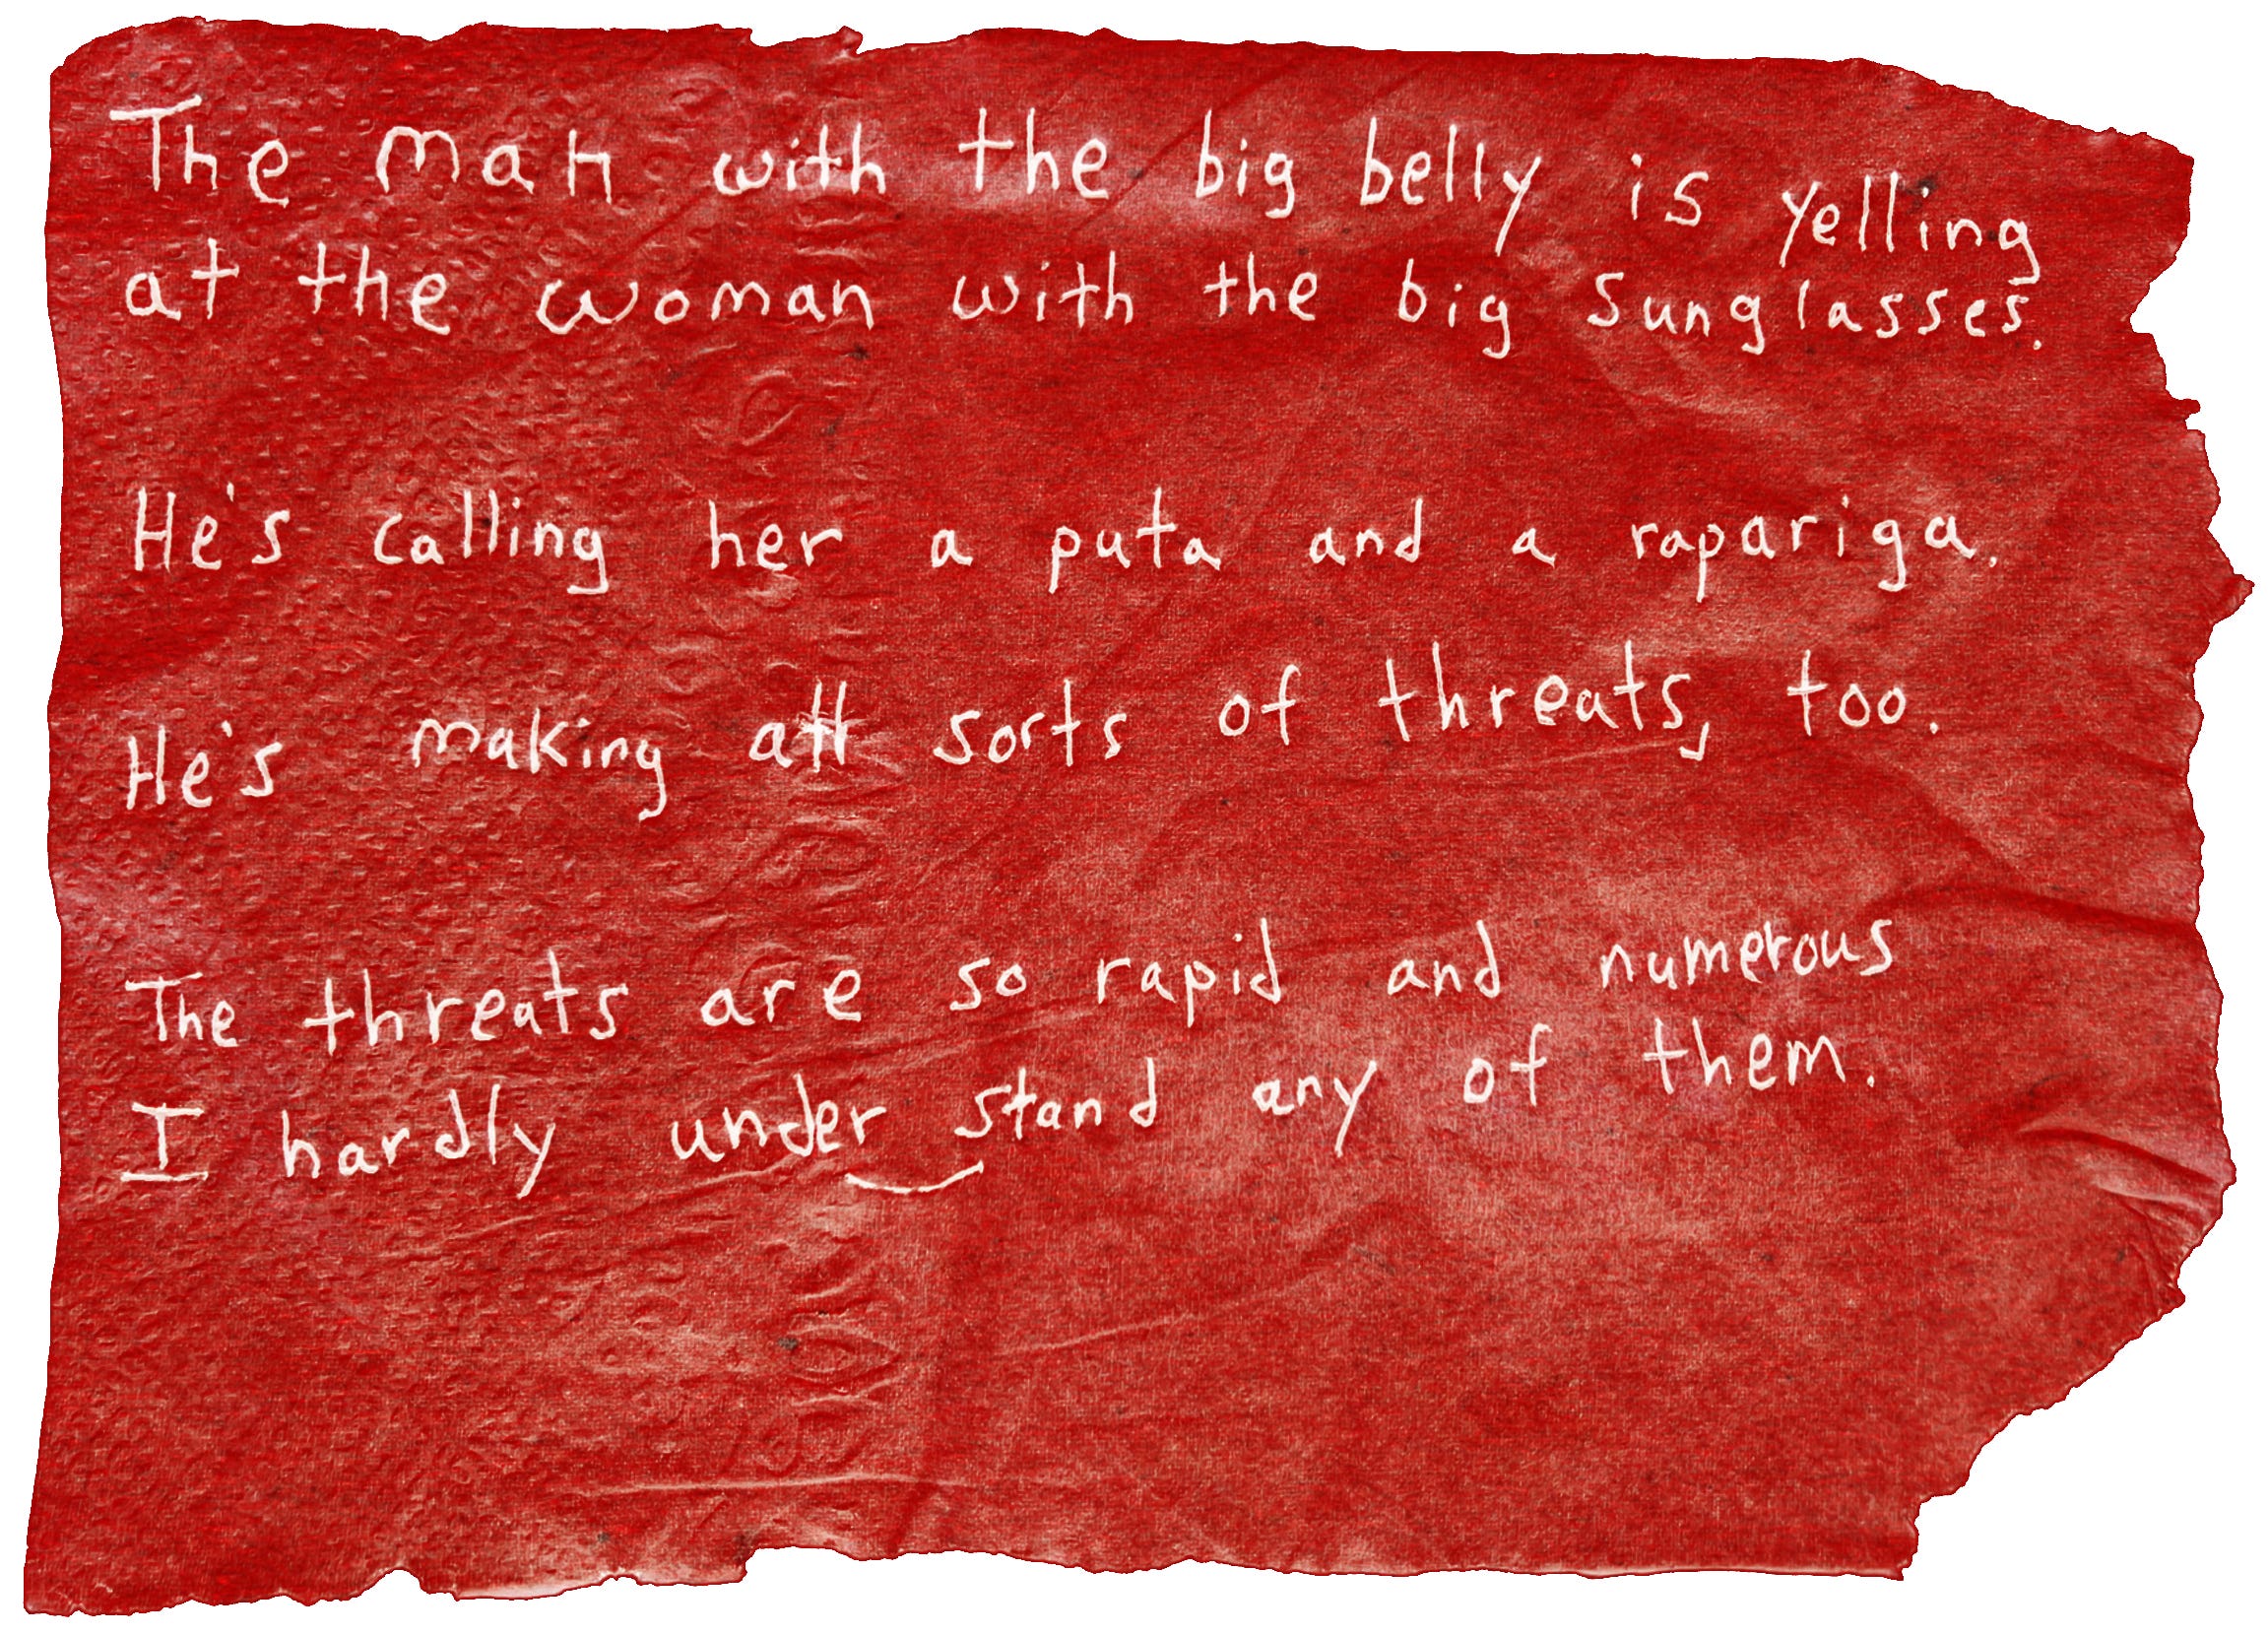 The man with the big belly is yelling
at the woman with the big sunglasses.
He's calling her a puta and a rapariga.
He's making all sorts of threats, too.
The threats are so rapid and numerous
I hardly understand any of them.